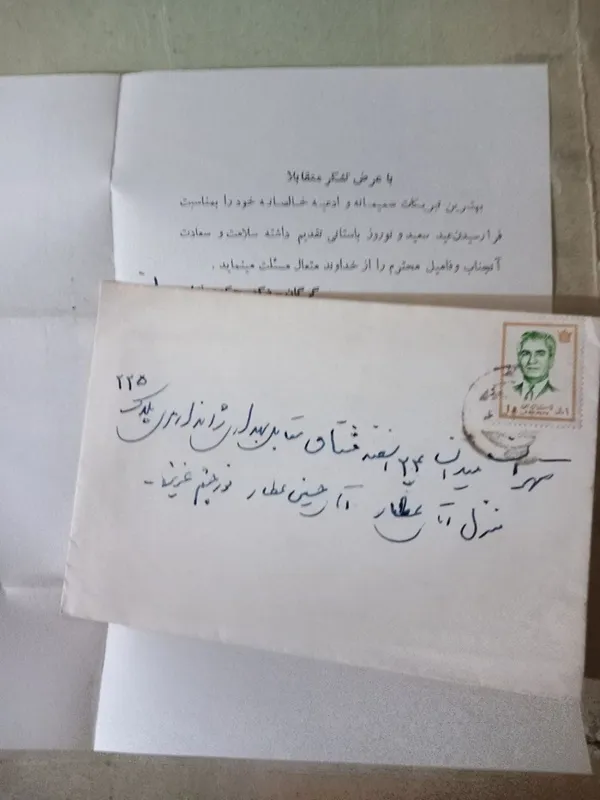 با عرض تشکر متقابلا
بهترین تبریکات صمیمانه و ادعیه خالصانه خود را بمناسبت
فرارسیدن عید سعید و نوروز باستانی تقدیم داشته سلامت و سعادت
آنجناب و فامیل محترم را از خداوند متعال مسئلت مینماید .
گرگان
تهران میدان ۲۴ اسفند مقابل ژاندارمری پلاک
۲۲۵
منزل آقای عطار آقای حسین عطار نورچشم عزیز